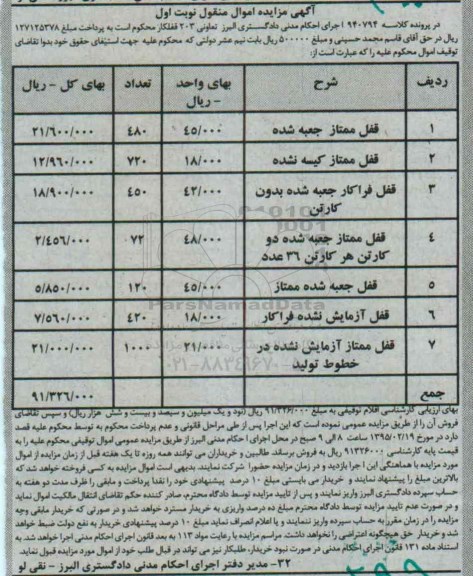 آگهی مزایده اموال منقول نوبت اول
در پرونده کلاسه ۹۴۰۷۹۴ اجرای احکام مدنی دادگستری البرز تعاونی ۲۰۳ قفلکار محکوم است به پرداخت مبلغ ۱۲۷۱۲۵۳۷۸
ریال در حق آقای قاسم محمد حسینی و مبلغ ۵۰۰۰۰۰ ریال بابت نیم عشر دولتی که محکوم علیه جهت استیفای حقوق خود بدوا تقاضای
توقیف اموال محکوم علیه را که عبارت است از:
ردیف شرح بهای واحد - ریال تعداد بهای کل - ریال
۱ قفل ممتاز جعبه شده ۴۵/۰۰۰ ۴۸۰ ۲۱/۶۰۰/۰۰۰
۲ قفل ممتاز کیسه نشده ۱۸/۰۰۰ ۷۲۰ ۱۲/۹۶۰/۰۰۰
۳ قفل فراکار جعبه شده بدون ۴۲/۰۰۰ ۴۵۰ ۱۸/۹۰۰/۰۰۰
کارتن
۴ قفل ممتاز جعبه شده دو ۴۸/۰۰۰ ۷۲ ۲/۴۵۶/۰۰۰
کارتن هر کارتن ۳۶ عدد
۵ قفل جعبه شده ممتاز ۴۵/۰۰۰ ۱۲۰ ۵/۸۵۰/۰۰۰
۶ قفل آزمایش نشده فراکار ۱۸/۰۰۰ ۴۲۰ ۷/۵۶۰/۰۰۰
۷ قفل ممتاز آزمایش نشده در ۲۱/۰۰۰ ۱۰۰۰ ۲۱/۰۰۰/۰۰۰
خطوط تولید
جمع ۹۱/۳۲۶/۰۰۰
ParsNamadData
۰۲۱-۸۸۳۴۹۶۷۰
بهای ارزیابی کارشناسی اقلام توقیفی به مبلغ ۹۱/۳۲۶/۰۰۰ ریال (نود و یک میلیون و سیصد و بیست و شش هزار ریال) و سپس تقاضای
فروش آن را از طریق مزایده عمومی نموده است که این اجرا پس از طی مراحل قانونی و عدم پرداخت محکوم به توسط محکوم علیه قصد
دارد در مورخ ۱۳۹۵/۰۲/۱۹ ساعت ۸ الی ۹ صبح در محل اجرای احکام مدنی البرز از طریق مزایده عمومی اموال توقیفی محکوم علیه را به
قیمت پایه کارشناسی ۹۱۳۲۶۰۰۰ ریال به فروش برساند. طالبین و خریداران می توانند همه روزه تا یک هفته قبل از زمان مزایده از اموال
مورد مزایده با هماهنگی این اجرا بازدید و در زمان مزایده حضورا شرکت نمایند. بدیهی است اموال مزایده به کسی فروخته خواهد شد که
بالاترین مبلغ را پیشنهاد نمایند و خریدار می بایستی مبلغ ۱۰ درصد پیشنهادی خود را نقدا پرداخت و مابقی را ظرف مدت دو هفته به
حساب سپرده دادگستری البرز واریز نمایند و پس از تایید مزایده توسط دادگاه محترم، صادر کننده حکم تقاضای انتقال مالکیت اموال نماید
و در صورت عدم تایید مزایده توسط دادگاه محترم مبلغ ده درصد واریزی به خریدار مسترد خواهد شد و در صورتی که خریدار مابقی وجه
مزایده را در زمان مقرر به حساب سپرده واریز ننمایند و یا اعلام انصراف نماید مبلغ ۱۰ درصد پیشنهادی خریدار به نفع دولت ضبط خواهد
شد و خریدار حق هیچگونه اعتراضی را نخواهد داشت. مراسم مزایده با رعایت مواد ۱۱۳ به بعد قانون اجرای احکام مدنی اجرا خواهد شد. به
استناد ماده ۱۳۱ قانون اجرای احکام مدنی در صورت نبود خریدار، طلبکار نیز می تواند در قبال طلب خود از اموال مورد مزایده قبول نماید.
۳۲- مدیر دفتر اجرای احکام مدنی دادگستری البرز - نقی لو